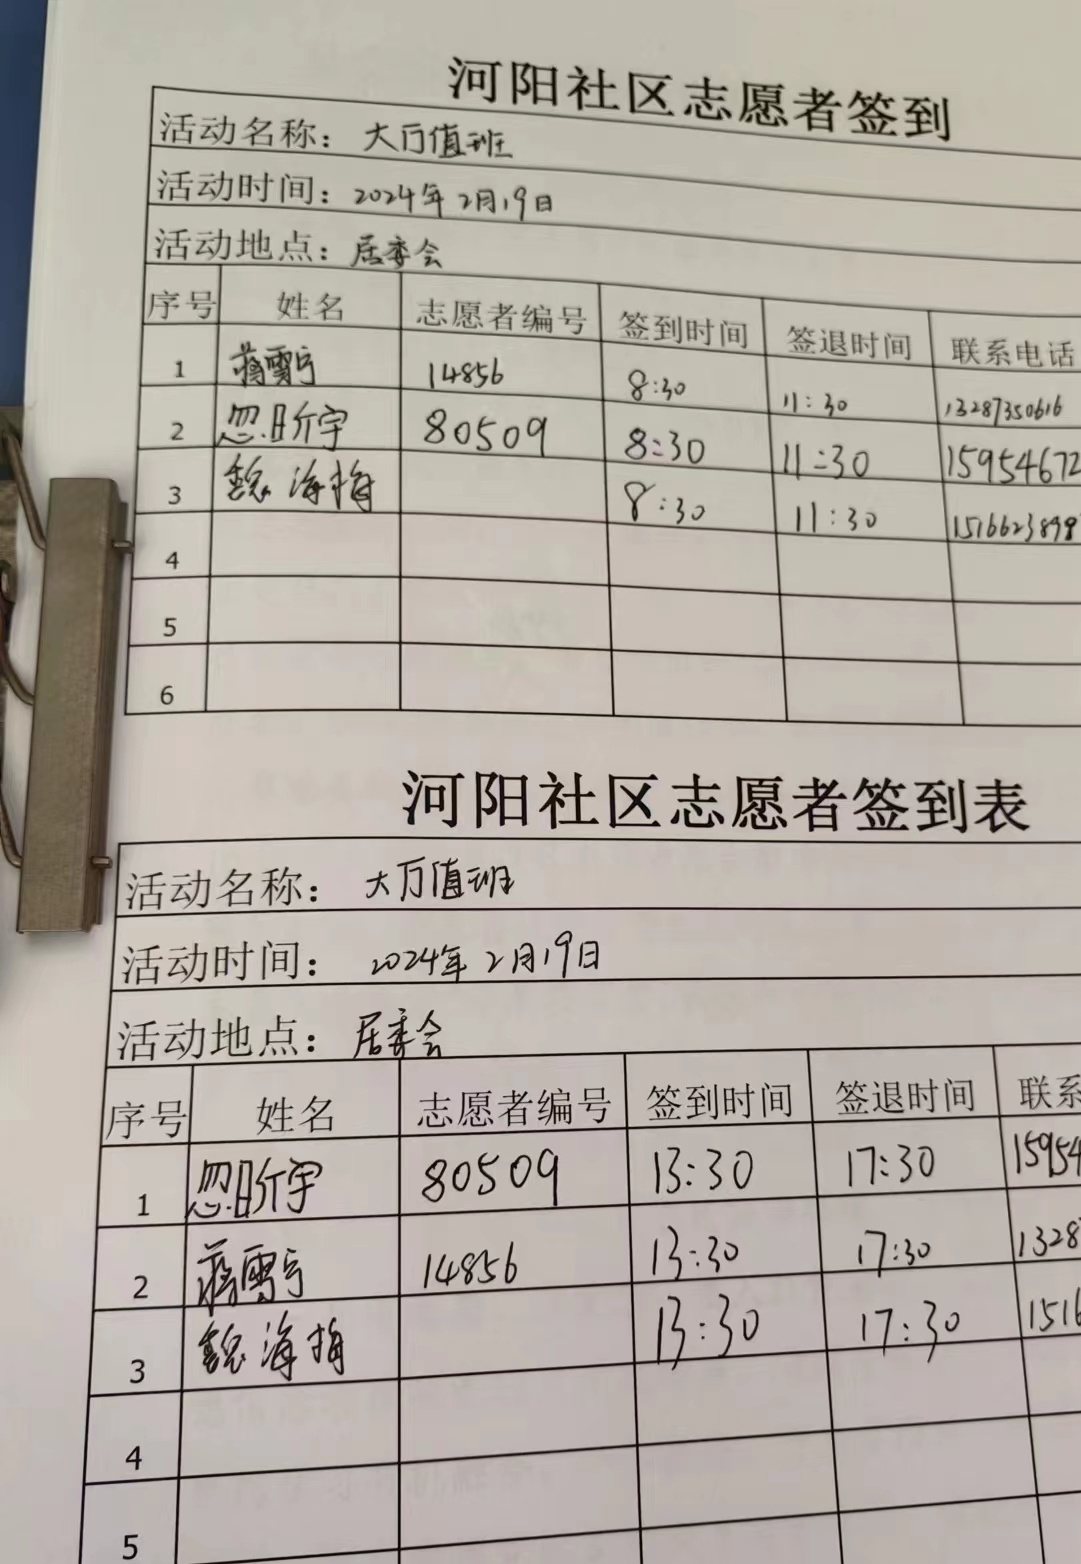 河阳社区志愿者签到
活动名称: 大厅值班
活动时间: 2024年2月19日
活动地点: 居委会
序号 姓名 志愿者编号 签到时间 签退时间 联系电话
1 蒋雪宁 14856 8:30 11:30 13287350616
2 忽昕宇 80509 8:30 11:30 15954672
3 魏海梅 8:30 11:30 1516623898
4
5
6
河阳社区志愿者签到表
活动名称: 大厅值班
活动时间: 2024年2月19日
活动地点: 居委会
序号 姓名 志愿者编号 签到时间 签退时间 联系
1 忽昕宇 80509 13:30 17:30 15954
2 蒋雪宁 14856 13:30 17:30 1328
3 魏海梅 13:30 17:30 1516
4
5